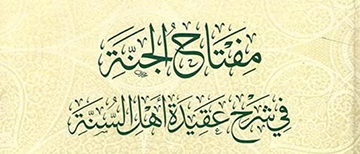 مِفْتَاحُ الجَنَّةِ
فِي شَرْحِ عَقِيدَةِ أَهْلِ السُّنَّةِ